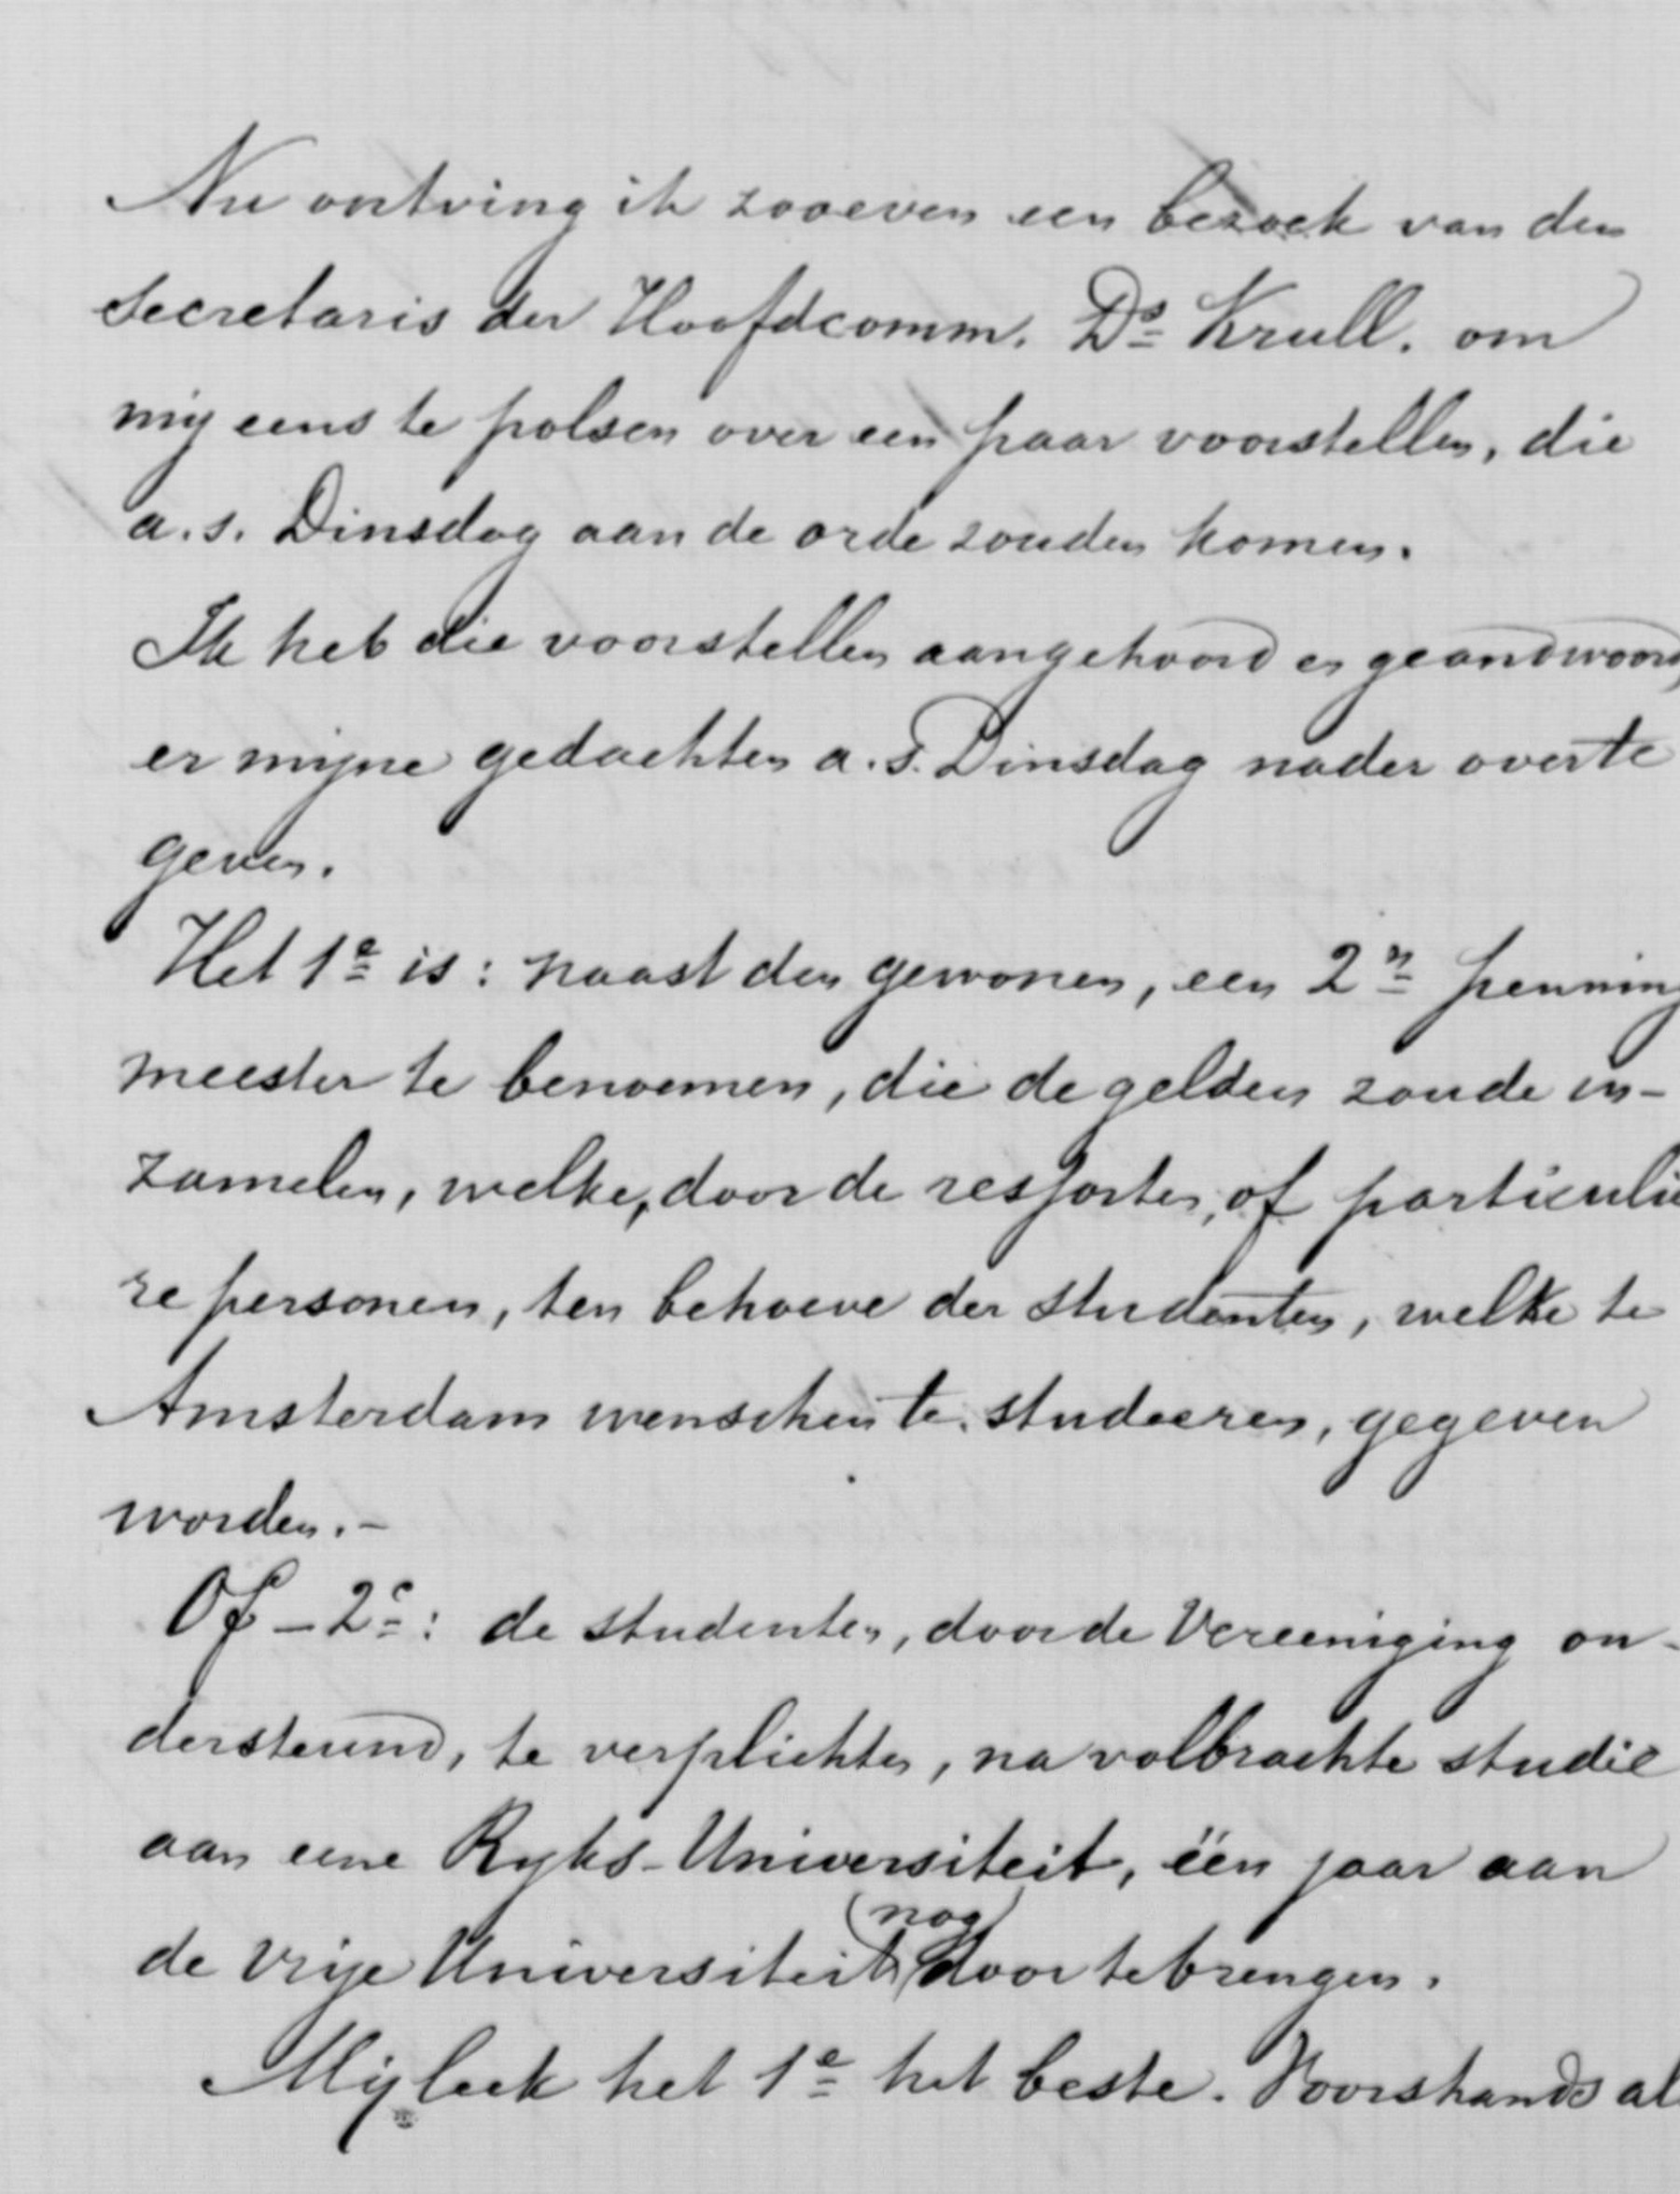 Nu ontving ik zooeven een bezoek van den
secretaris der Hoofdcomm. Ds Krull. om
mij eens te polsen over een paar voorstellen, die
a.s. Dinsdag aan de orde zouden komen.
Ik heb die voorstellen aangehoord en geandwoord
er mijne gedachten a.s. Dinsdag nader over te
geven.
Het 1e is: naast den gewonen, een 2n penning
meester te benoemen, die de gelden zoude in-
zamelen, welke, door de ressorten, of particulie
re personen, ten behoeve der studenten, welke te
Amsterdam wenschen te studeeren, gegeven
worden.-
Of - 2e: de studenten, door de Vereeniging on-
dersteund, te verplichten, na volbrachte studie
aan eene Ryks-Universiteit, één jaar aan
(nog)
de Vrije Universiteit door te brengen.
Mij leek het 1e het beste. Voorshands al